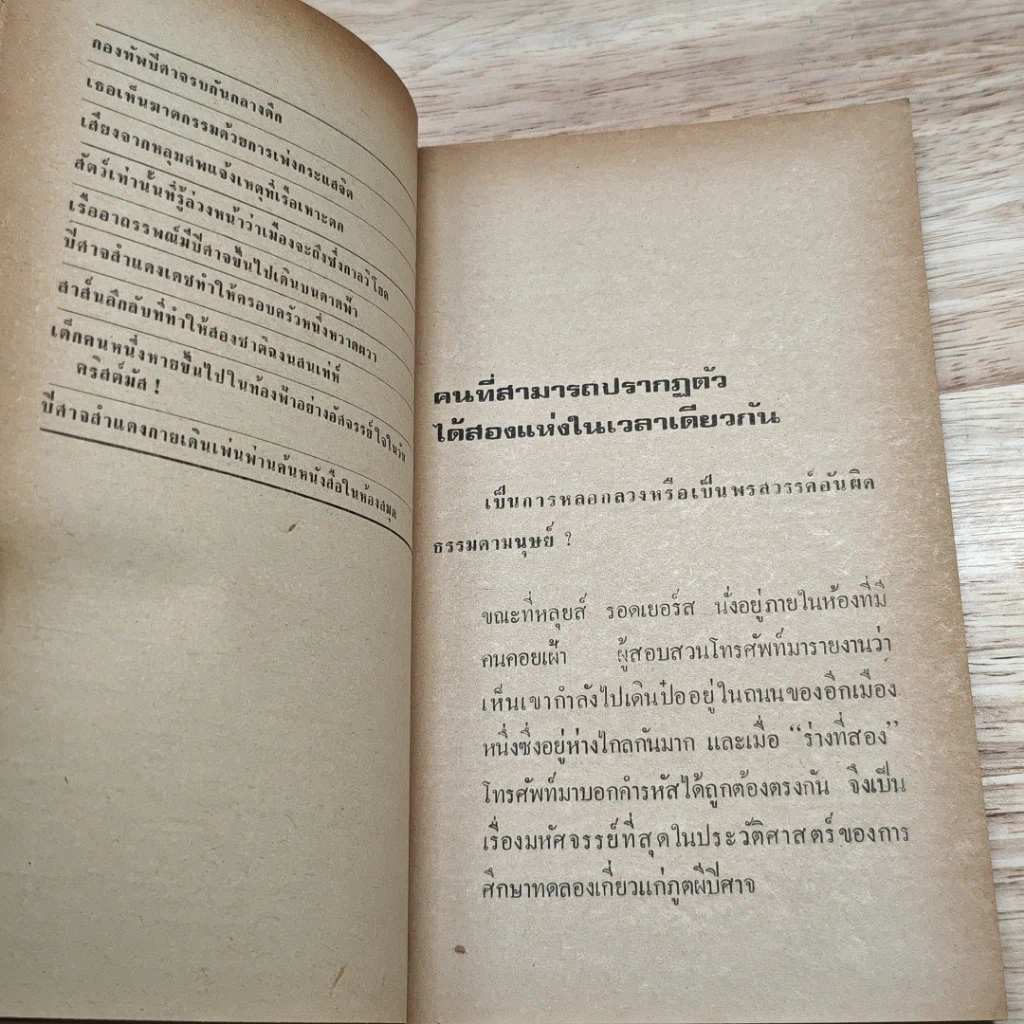 กองทัพปีศาจรบกันกลางดึก
เธอเห็นฆาตกรรมด้วยการเพ่งกระแสจิต
เสียงจากหลุมศพแจ้งเหตุที่เรือเหาะตก
สัตว์เท่านั้นที่รู้ล่วงหน้าว่าเมืองจะถึงซึ่งกาลวิโยค
เรืออาถรรพณ์มีปีศาจขึ้นไปเดินบนดาดฟ้า
ปีศาจสำแดงเดชทำให้ครอบครัวหนึ่งหวาดผวา
สาส์นลึกลับที่ทำให้สองชาติฉงนสนเท่ห์
เด็กคนหนึ่งหายขึ้นไปในท้องฟ้าอย่างอัศจรรย์ใจในวัน
คริสต์มัส !
ปีศาจสำแดงกายเดินเพ่นพ่านค้นหนังสือในห้องสมุด
คนที่สามารถปรากฏตัว
ได้สองแห่งในเวลาเดียวกัน
เป็นการหลอกลวงหรือเป็นพรสวรรค์อันผิด
ธรรมดามนุษย์ ?
ขณะที่หลุยส์ รอดเยอร์ส นั่งอยู่ภายในห้องที่มี
คนคอยเฝ้า ผู้สอบสวนโทรศัพท์มารายงานว่า
เห็นเขากำลังไปเดินป๋ออยู่ในถนนของอีกเมือง
หนึ่งซึ่งอยู่ห่างไกลกันมาก และเมื่อ “ร่างที่สอง”
โทรศัพท์มาบอกคำรหัสได้ถูกต้องตรงกัน จึงเป็น
เรื่องมหัศจรรย์ที่สุดในประวัติศาสตร์ของการ
ศึกษาทดลองเกี่ยวแก่ภูตผีปีศาจ